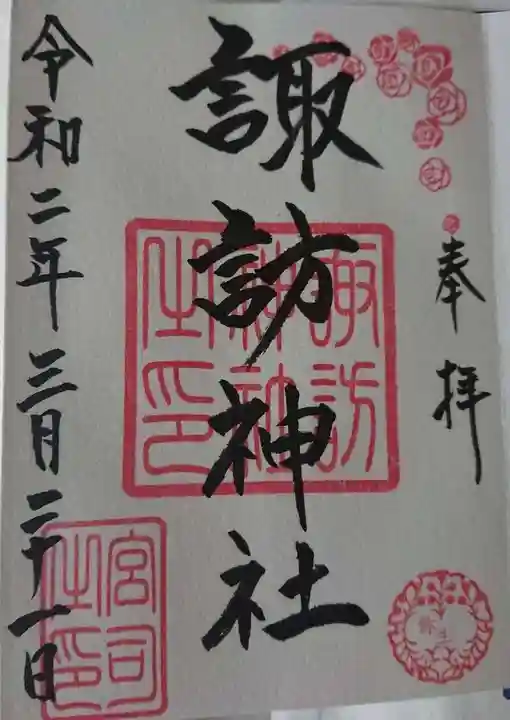 奉拝
諏訪神社
諏訪
神社
之印
令和二年三月二十一日
宮司
之印